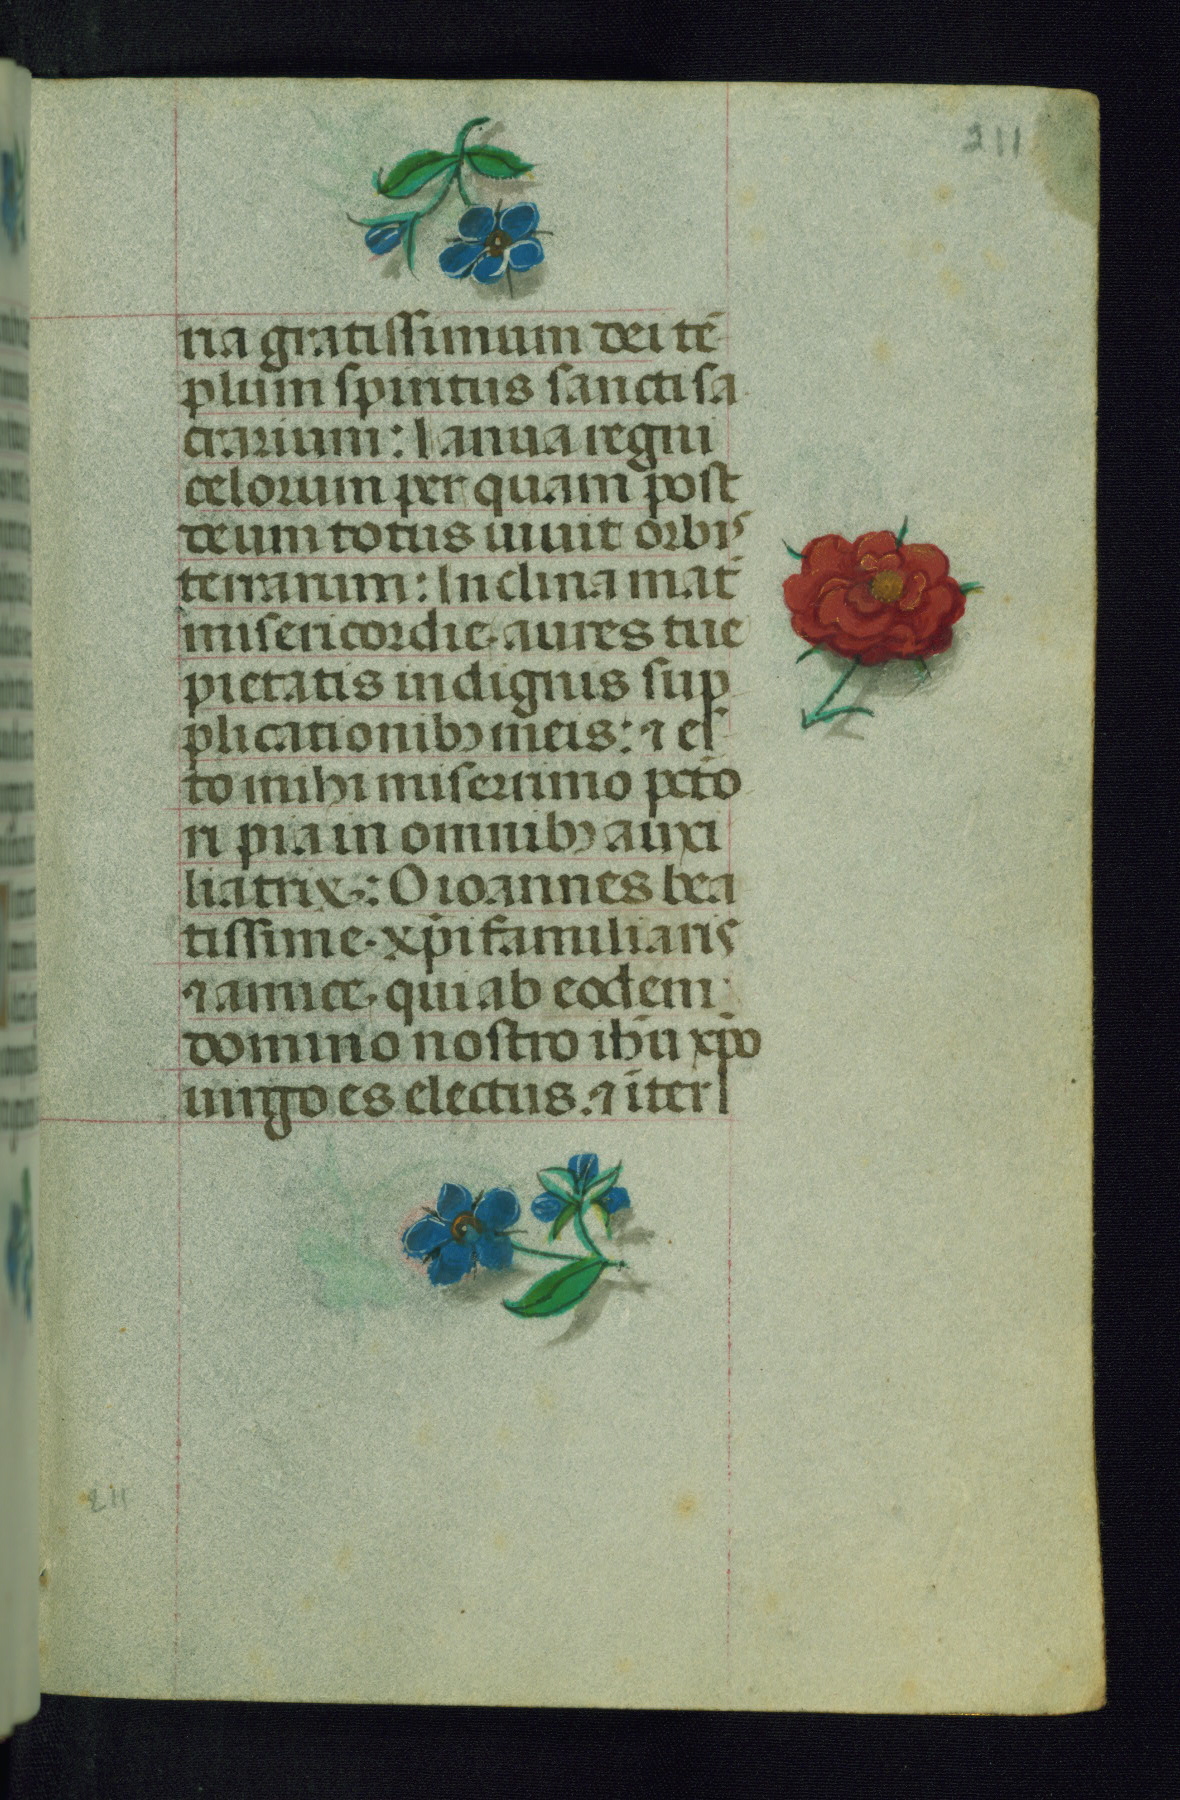 211
ria gratissimum dei tē
plum spiritus sancti sa
crarium: Ianua regni
celorum per quam post
deum totus uiuit orbis
terrarum: Inclina mat̄
misericordie. aures tue
pietatis indignis sup
plicationibꝫ meis: ⁊ es
to mihi miserrimo pcto
ri pia in omnibꝫ auxi
liatrix: O ioannes bea
tissime. xp̄i familiaris
⁊ amice. qui ab eodem
domino nostro ihū xp̄o
uirgo es electus. ⁊ īter
211